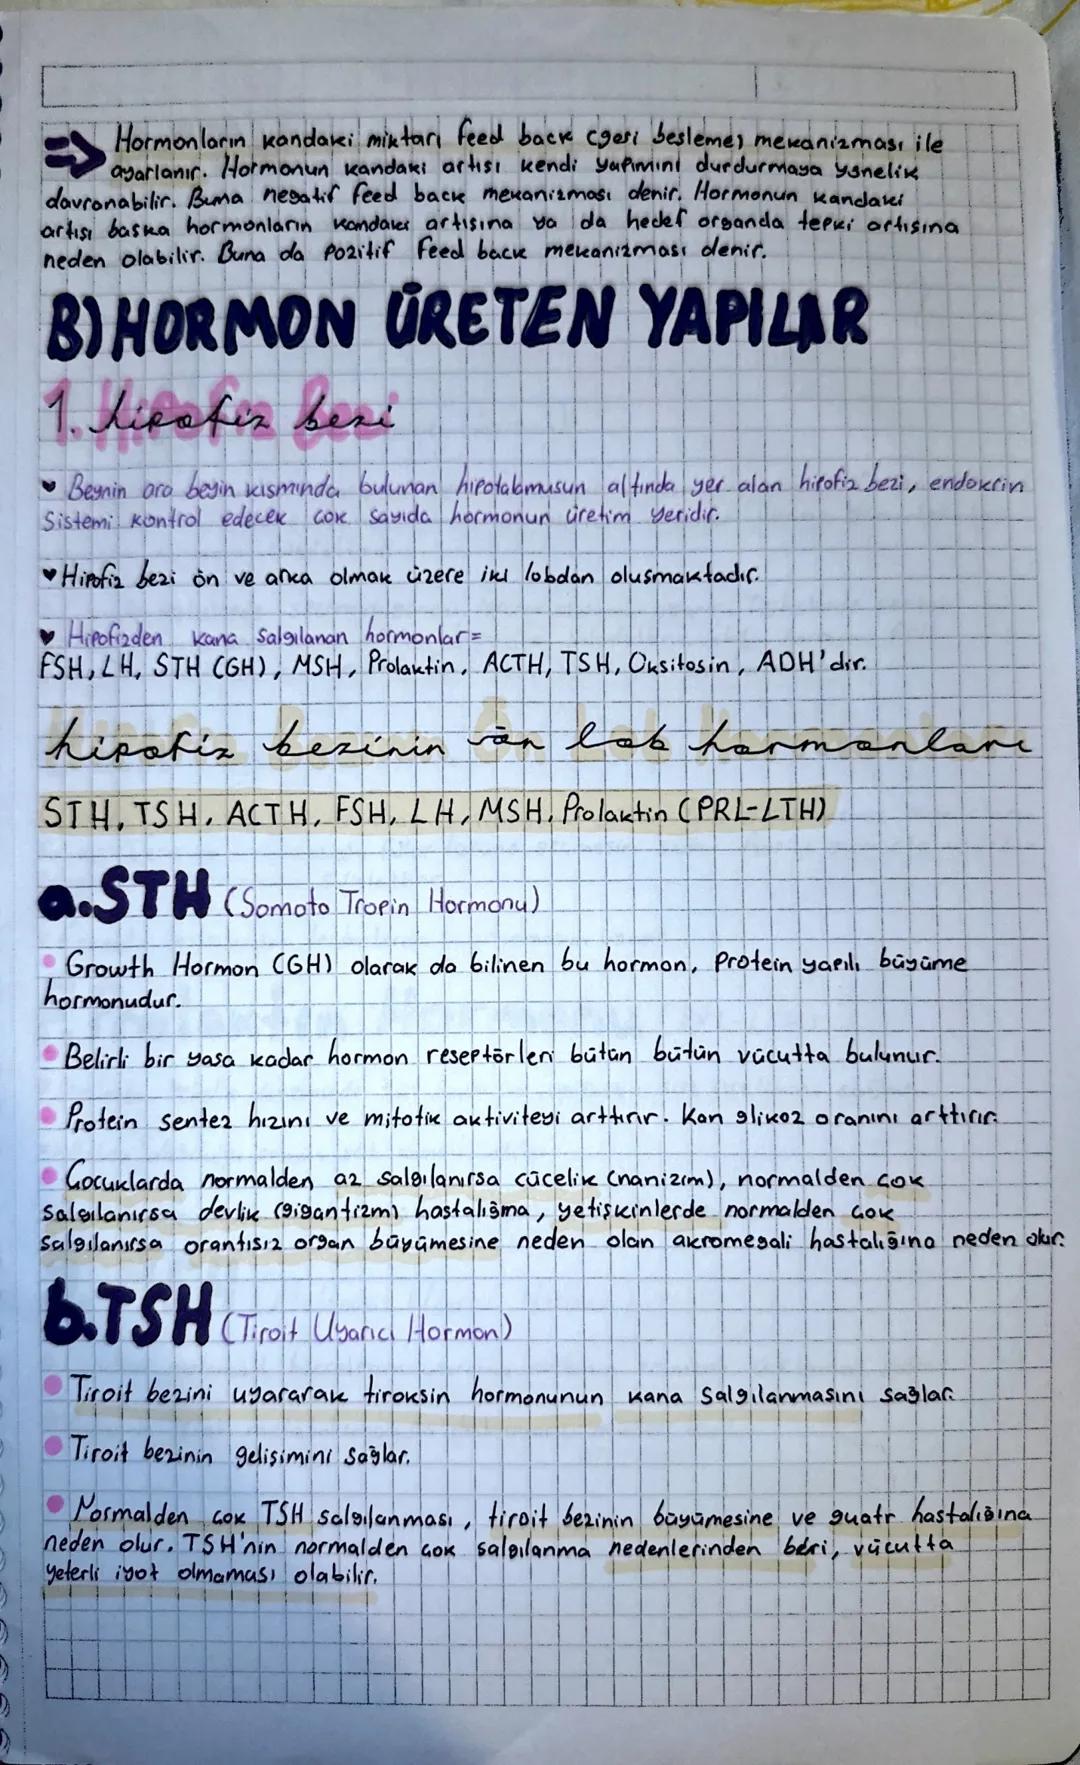 ⇒ Hormonların kandaki miktarı feed back (geri besleme) mekanizması ile
ayarlanır. Hormonun kandaki artışı kendi yapımını durdurmaya yönelik
davranabilir. Buna negatif feed back mekanizması denir. Hormonun kandaki
artışı başka hormonların kandaki artışına ya da hedef organda tepki artışına
neden olabilir. Buna da pozitif feed back mekanizması denir.
B) HORMON ÜRETEN YAPILAR
1. hipofiz bezi
♥ Beynin ara beyin kısmında bulunan hipotalamusun altında yer alan hipofiz bezi, endokrin
Sistemi kontrol edecek çok sayıda hormonun üretim yeridir.
♥ Hipofiz bezi ön ve arka olmak üzere iki lobdan oluşmaktadır.
♥ Hipofizden kana salgılanan hormonlar=
FSH, LH, STH (GH), MSH, Prolaktin, ACTH, TSH, Oksitosin, ADH'dir.
hipofiz bezinin ön lob hormonları
STH, TSH, ACTH, FSH, LH, MSH, Prolaktin (PRL-LTH)
a.STH (Somoto Tropin Hormonu)
• Growth Hormon (GH) olarak da bilinen bu hormon, protein yapılı büyüme
hormonudur.
• Belirli bir yaşa kadar hormon reseptörleri bütün bütün vücutta bulunur.
• Protein sentez hızını ve mitotik aktiviteyi arttırır. Kan glikoz oranını arttırır.
• Çocuklarda normalden az salgılanırsa cücelik (nanizim), normalden çok
salgılanırsa devlik (gigantizm) hastalığına, yetişkinlerde normalden çok
salgılanırsa orantısız organ büyümesine neden olan akromegali hastalığına neden olur.
b.TSH (Tiroit Uyarıcı Hormon)
• Tiroit bezini uyararak tiroksin hormonunun kana salgılanmasını sağlar.
• Tiroit bezinin gelişimini sağlar.
• Normalden çok TSH salgılanması, tiroit bezinin büyümesine ve guatr hastalığına
neden olur. TSH'nin normalden çok salgılanma nedenlerinden biri, vücutta
yeterli iyot olmaması olabilir.